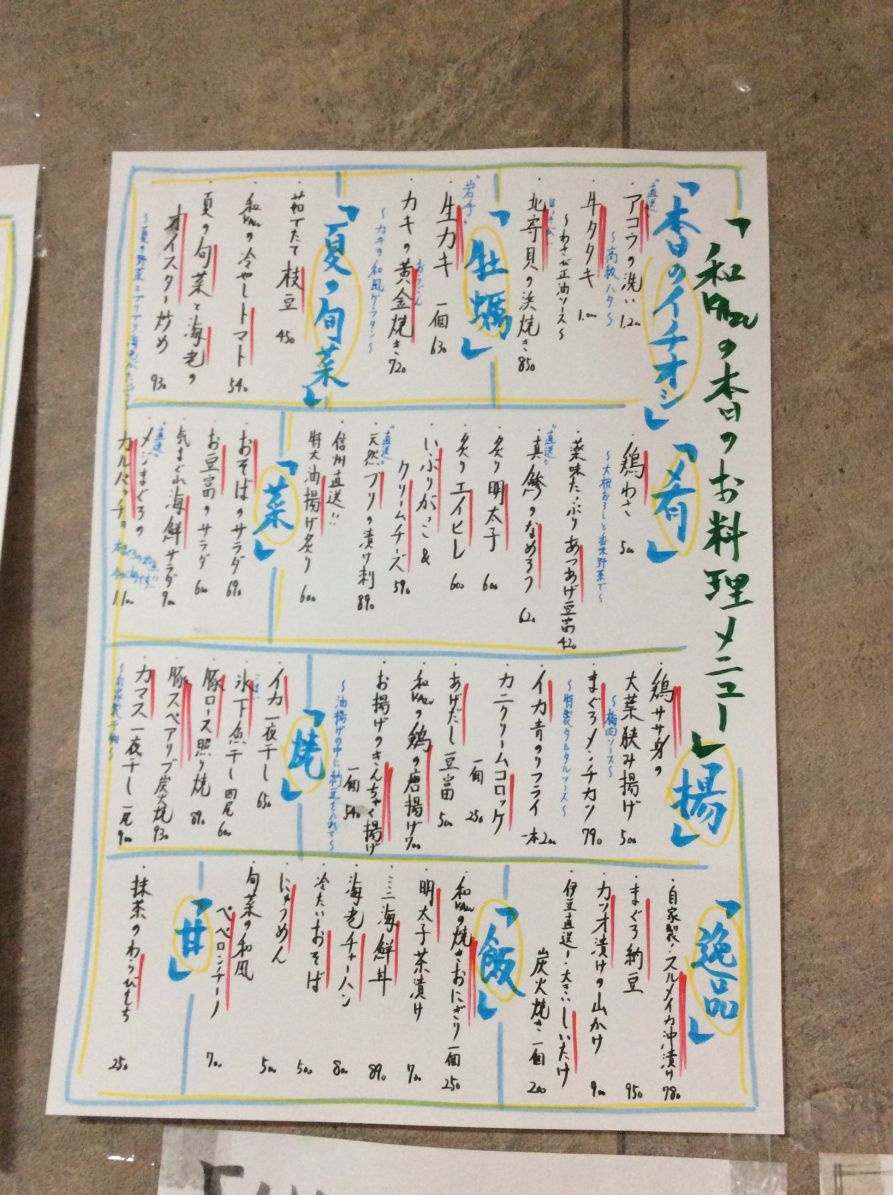 「和KAZUの本日のお料理メニュー」
「本日のイチオシ」
"直送"
・アコウの洗い 1.200
〜高級ハタ〜
・牛タタキ 1.000
〜わさび正油ソース〜
・北寄貝の浜焼き 850
「牡蠣」
"岩手"
・生カキ 一個 630
・カキの黄金焼き 720
おうごん
〜カキの和風グラタン〜
「夏の旬菜」
・茹でたて枝豆 450
・和KAZUの冷やしトマト 540
・夏の旬菜と海老の
オイスター炒め 930
「肴」
・鶏わさ 500
〜大根おろしと香味野菜で〜
・薬味たっぷりあつあげ豆富 420
"直送"
・真鯵のなめろう 620
・炙り明太子 600
・炙りエイヒレ 600
・いぶりがっこ&
クリームチーズ 590
"直送"
・天然ブリの漬け刺 890
・信州直送!!
特大油揚げ炙り 600
「菜」
・おそばのサラダ 690
・お豆富のサラダ 600
・気まぐれ海鮮サラダ 900
"直送"
・メジまぐろの
カルパッチョ 1.100
「揚」
・鶏ササ身の
大葉挟み揚げ 500
〜梅肉ソース〜
・まぐろメンチカツ 790
〜特製タルタルソース〜
・イカ青のりフライ 一本200
・カニクリームコロッケ
一個 250
・あげだし豆富 500
・和KAZUの鶏の唐揚げ 700
・お揚げのきんちゃく揚げ
一個 540
〜油揚げの中に納豆を入れて〜
「焼」
・イカ一夜干し 650
・氷下魚干し 四尾 600
・豚ロース照り焼 890
・豚スペアリブ炭火焼 930
・カマス一夜干し 一尾 900
〜自家製干物〜
「逸品」
・自家製!スルメイカ沖漬け 780
・まぐろ納豆 950
・カツオ漬けの山かけ 900
・伊豆直送!大きいしいたけ
炭火焼き 一個 200
「飯」
・和KAZUの焼きおにぎり 一個 250
・明太子茶漬け 700
・ミニ海鮮丼 890
・海老チャーハン 800
・冷たいおそば 500
・にゅうめん 500
・旬菜の和風
ペペロンチーノ 700
「甘」
・抹茶のわらびもち 250